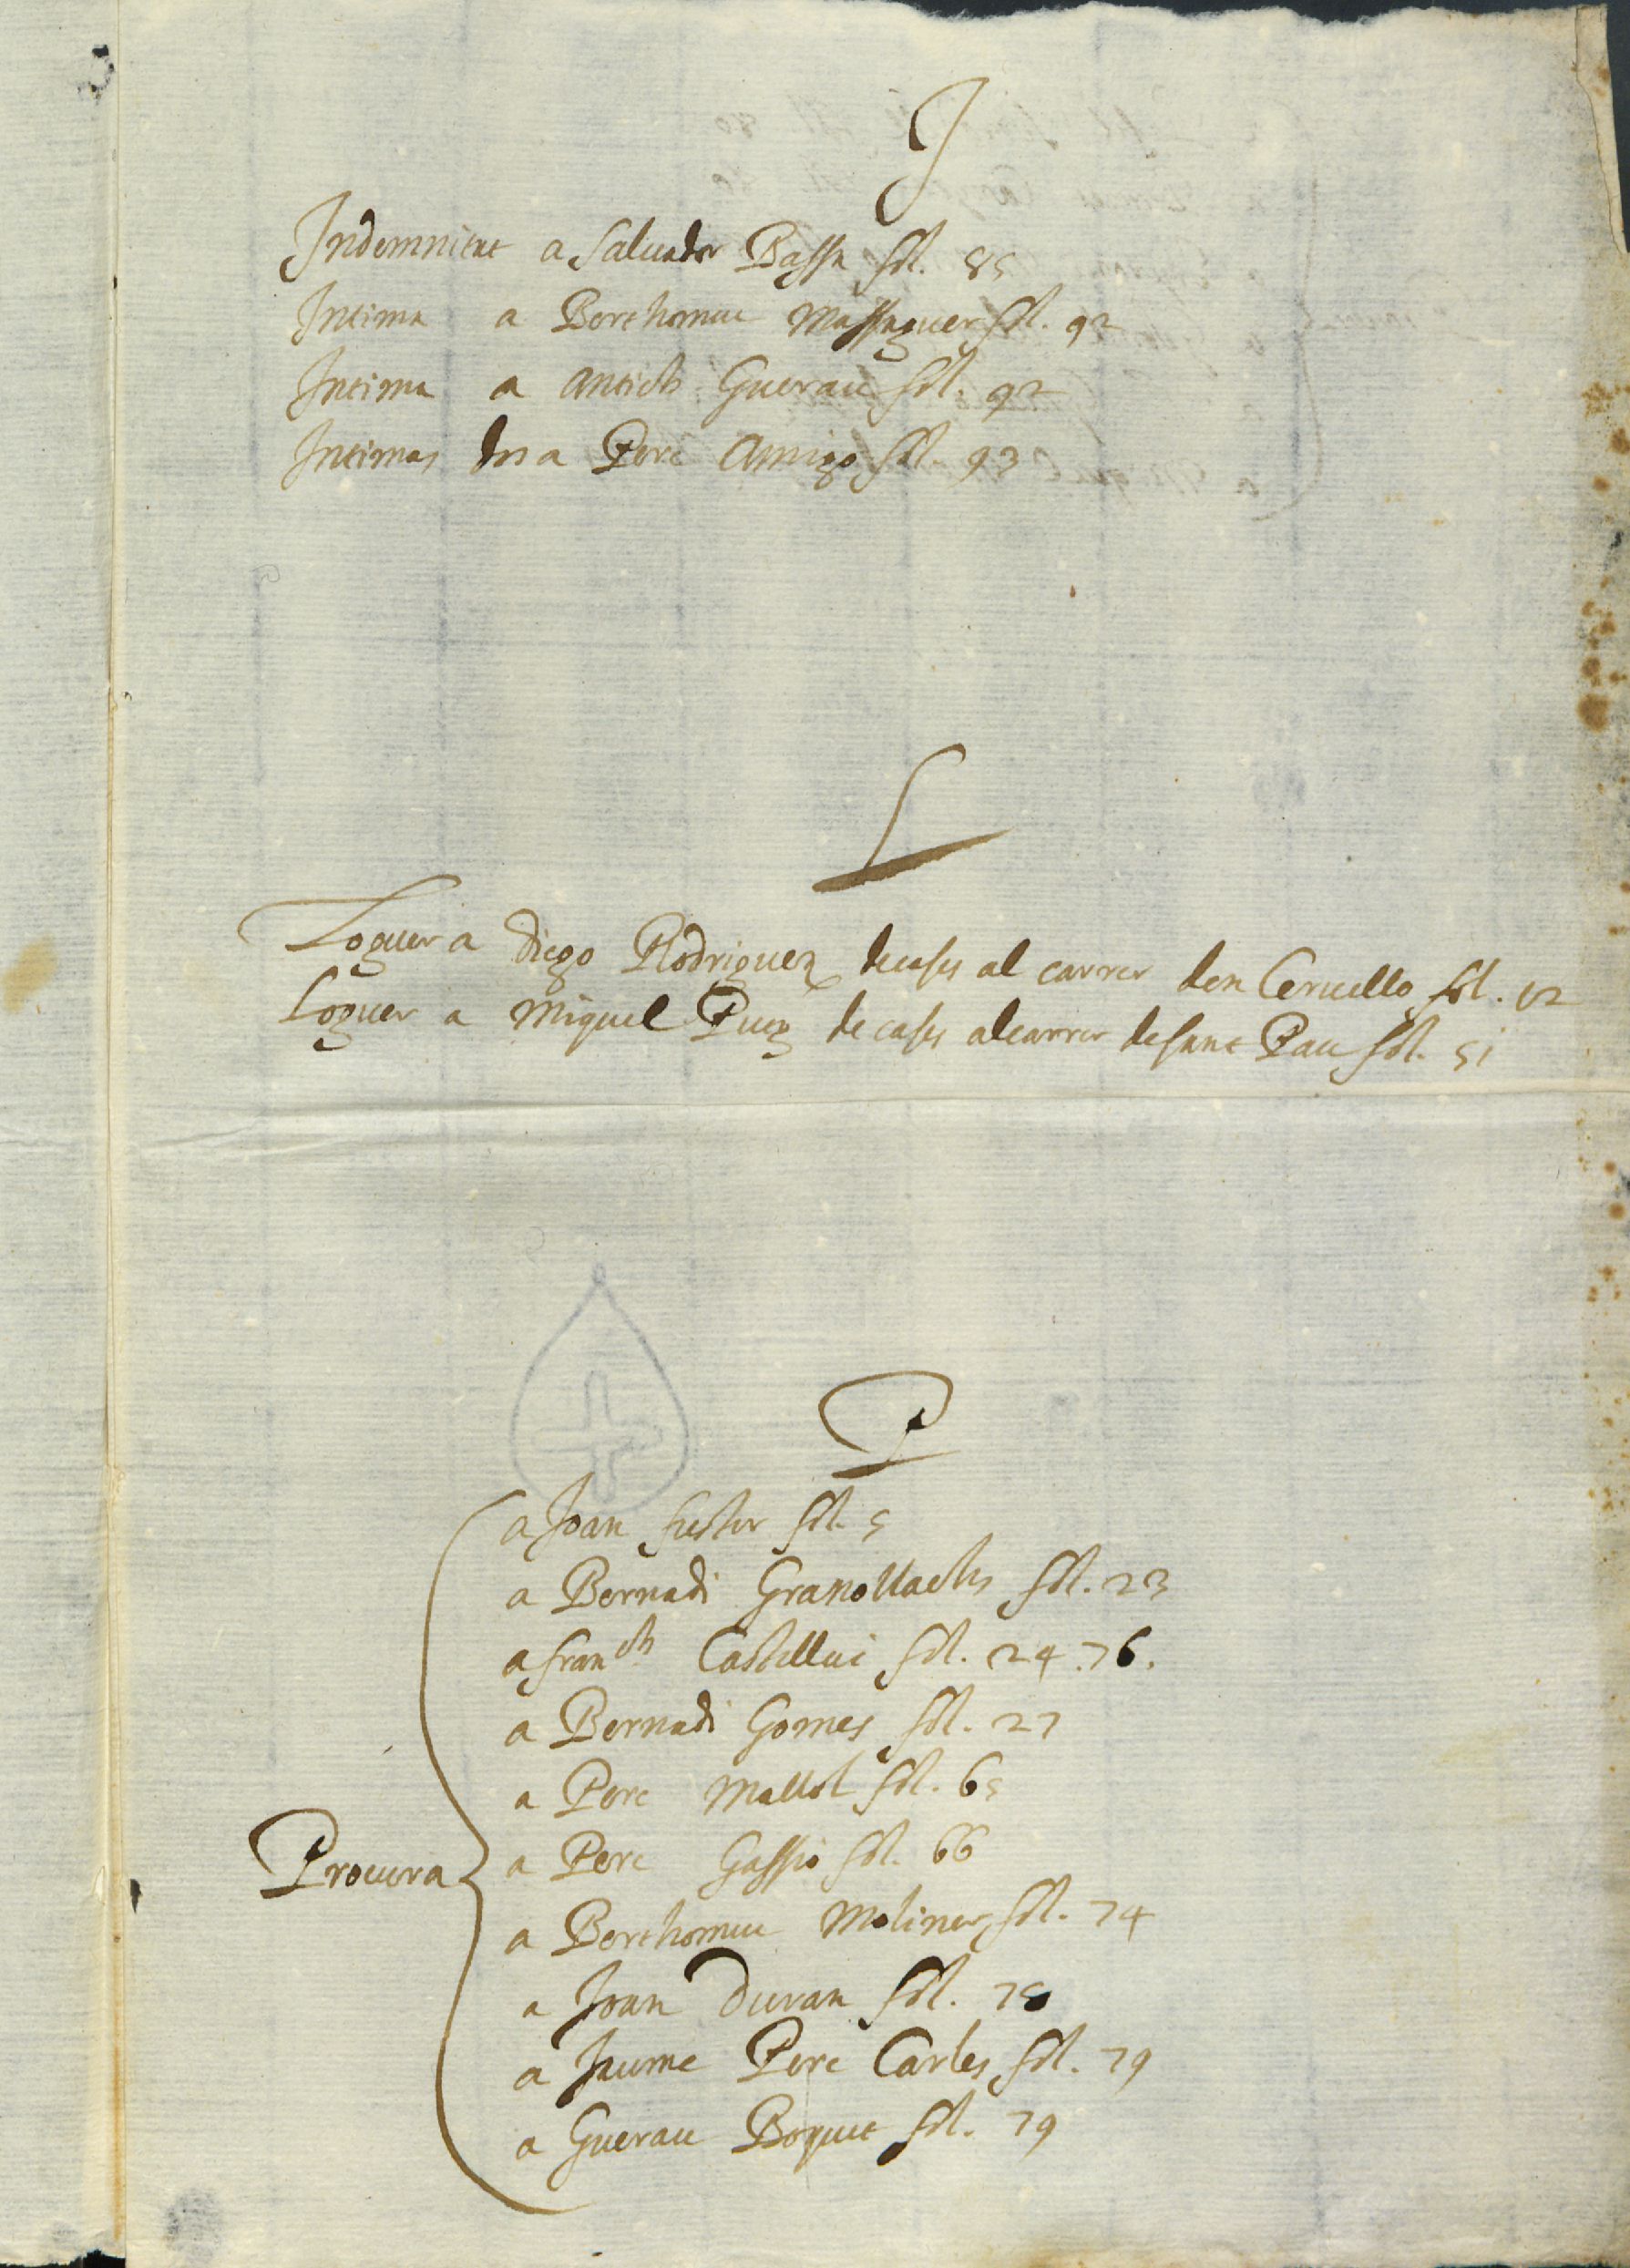 I
Indemnitat a Saluador Bassa fol. 85
Intima a Berthomeu Massaguer fol. 92
Intima a Antich Guerau fol. 92
Intimas dos a Pere Amigo fol. 93
L
Loguer a Diego Rodriguez de cases al carrer den Ceruello fol. 12
Loguer a Miquel Puig de cases al carrer de sant Pau fol. 51
P
Procura
a Joan fuster fol. 5
a Bernadi Granollachs fol. 23
a franch Castellui fol. 24. 76.
a Bernadi Gomes fol. 27
a Pere Mallol fol. 65
a Pere Gassio fol. 66
a Berthomeu Moliner fol. 74
a Joan Duran fol.
a Jaume Pere Carles fol. 79
a Guerau Boquet fol. 79